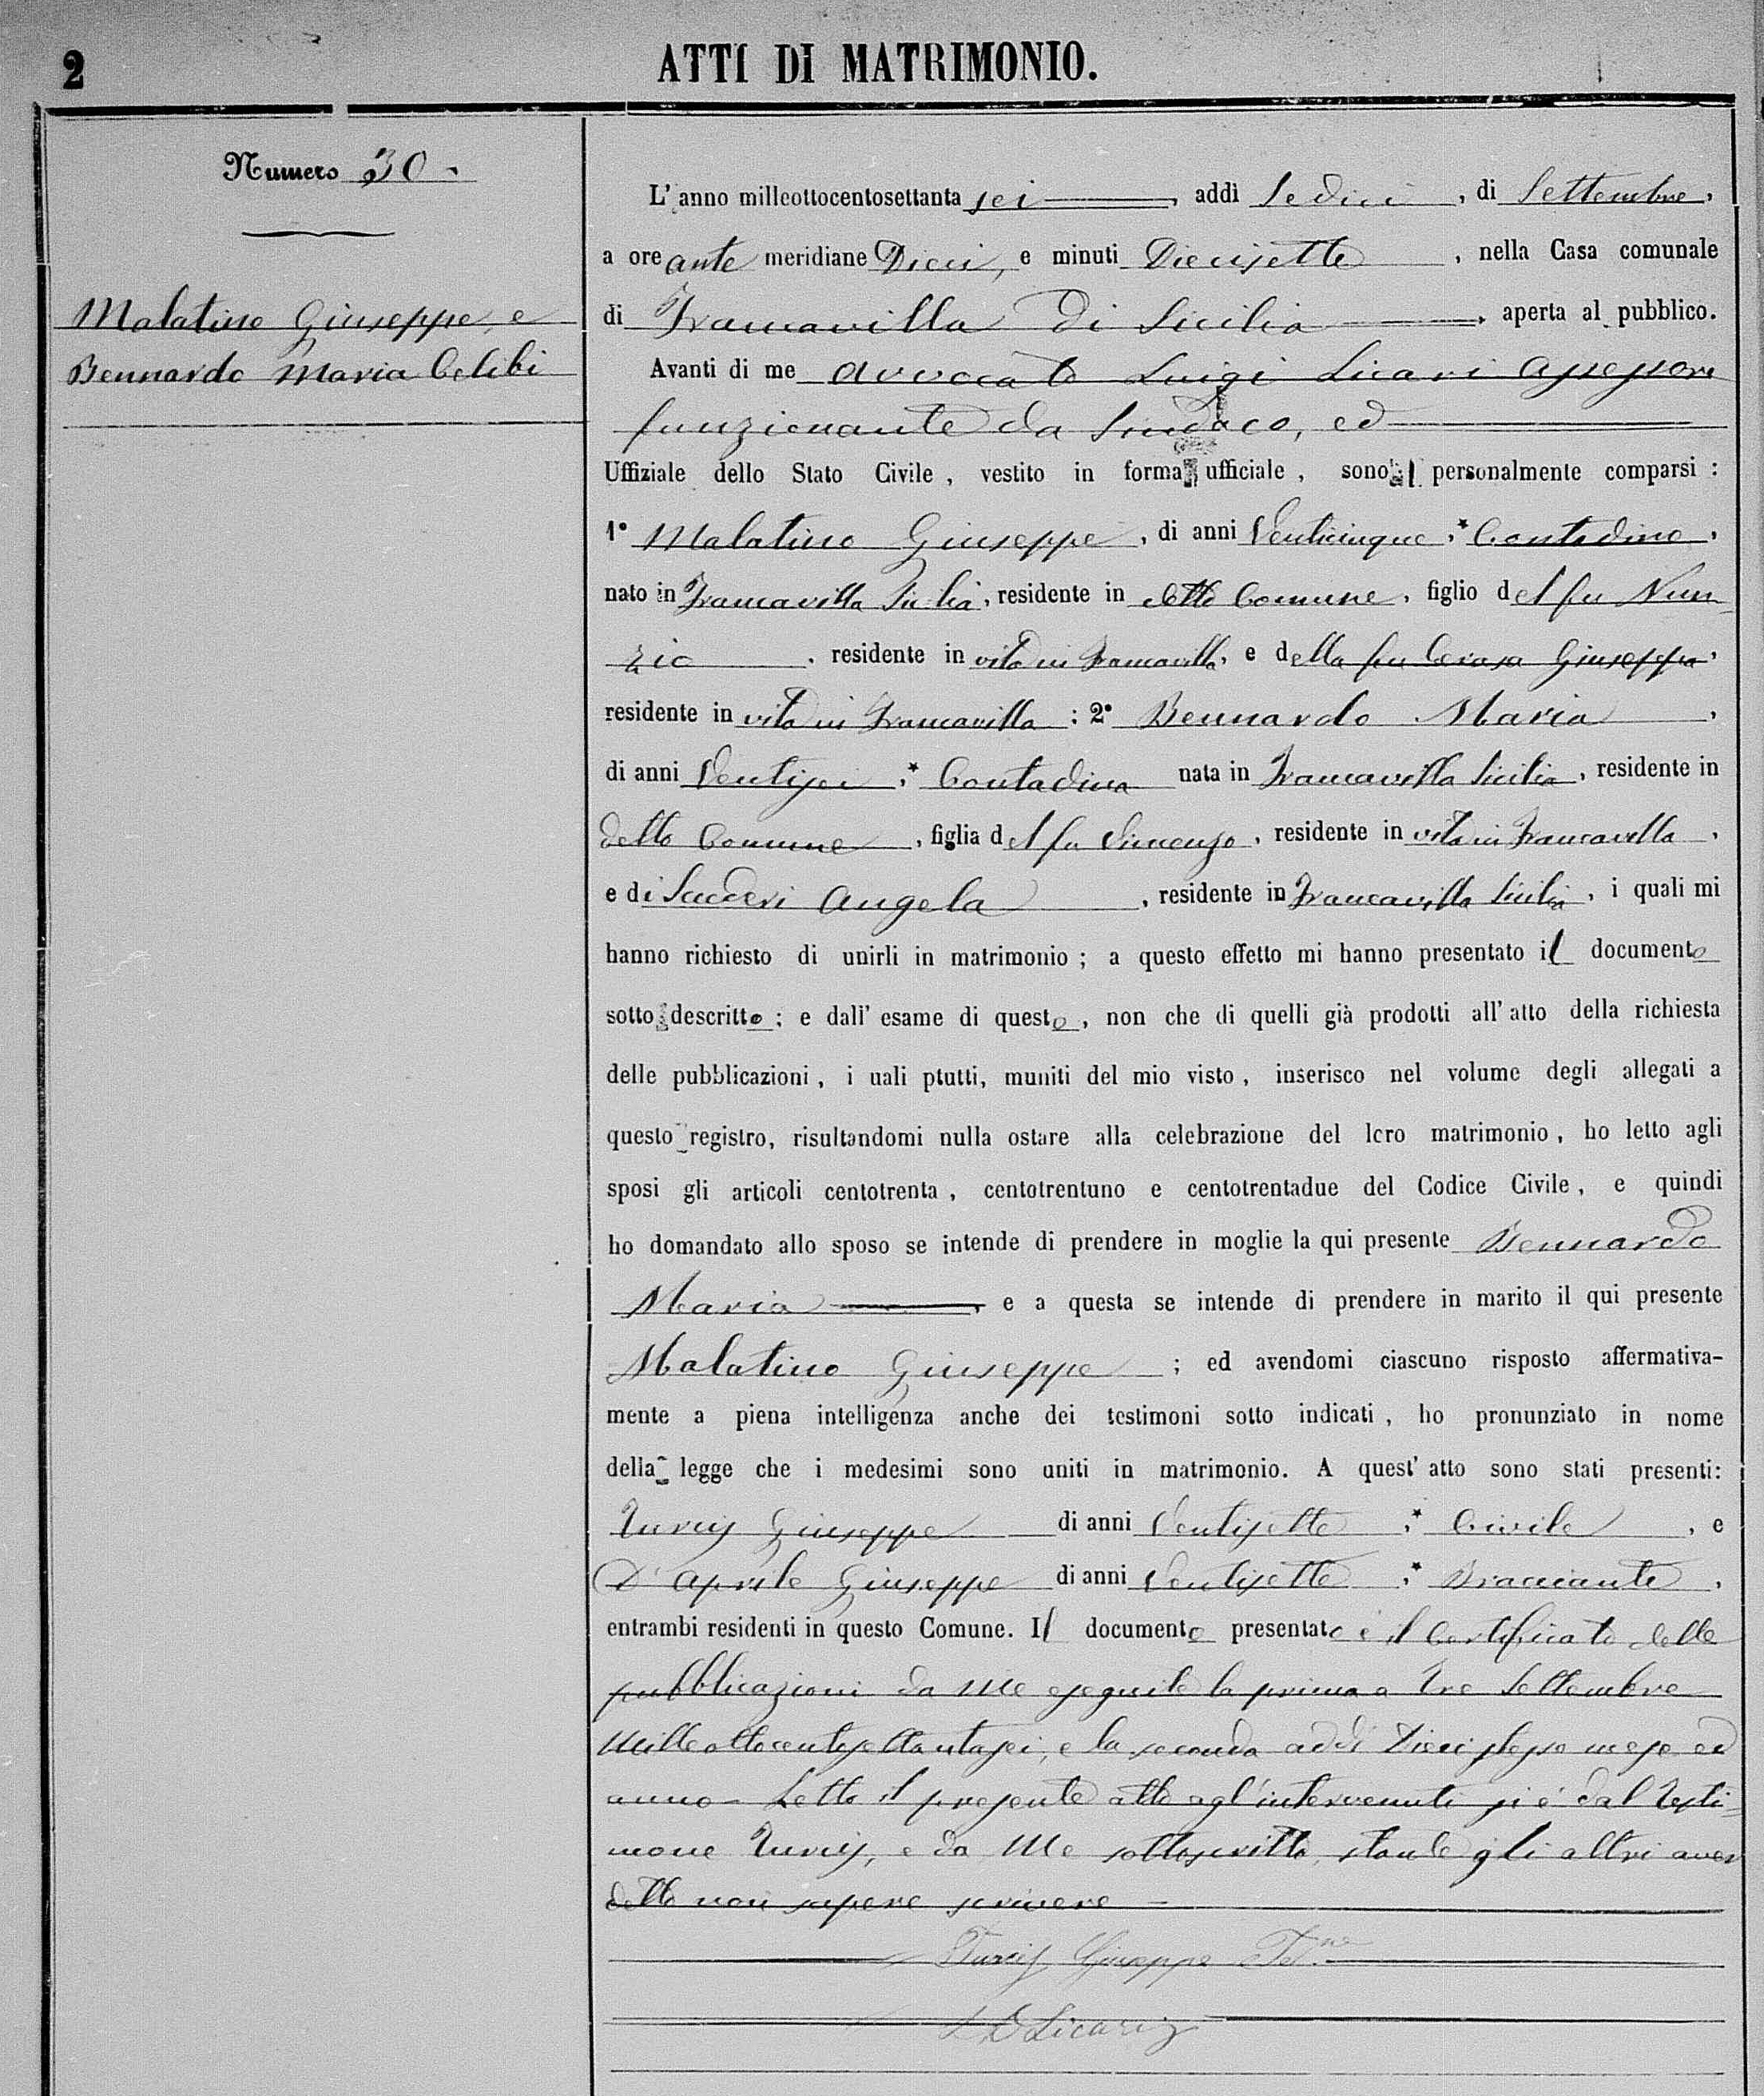 2
ATTI DI MATRIMONIO.
Numero 30
Malatino Giuseppe, e
Bennardo Maria Celibi
L'anno milleottocentosettanta sei, addì Sedici, di Settembre,
a ore ante meridiane Dieci, e minuti Diecisette, nella Casa comunale
di Francavilla di Sicilia, aperta al pubblico.
Avanti di me Avvocato Luigi Licari Assessore
funzionante da Sindaco, ed
Uffiziale dello Stato Civile, vestito in forma ufficiale, sono personalmente comparsi:
1° Malatino Giuseppe, di anni Venticinque,* Contadino,
nato in Francavilla Sicilia, residente in detto Comune, figlio del fu Nun-
zio, residente in vita in Francavilla, e della fu Cerasa Giuseppa,
residente in vita in Francavilla: 2° Bennardo Maria,
di anni Ventisei,* Contadina nata in Francavilla Sicilia, residente in
detto Comune, figlia del fu Vincenzo, residente in vita in Francavilla,
e di Scuderi Angela, residente in Francavilla Sicilia, i quali mi
hanno richiesto di unirli in matrimonio; a questo effetto mi hanno presentato il documento
sotto descritto; e dall'esame di questo, non che di quelli già prodotti all'atto della richiesta
delle pubblicazioni, i uali ptutti, muniti del mio visto, inserisco nel volume degli allegati a
questo registro, risultandomi nulla ostare alla celebrazione del loro matrimonio, ho letto agli
sposi gli articoli centotrenta, centotrentuno e centotrentadue del Codice Civile, e quindi
ho domandato allo sposo se intende di prendere in moglie la qui presente Bennardo
Maria, e a questa se intende di prendere in marito il qui presente
Malatino Giuseppe; ed avendomi ciascuno risposto affermativa-
mente a piena intelligenza anche dei testimoni sotto indicati, ho pronunziato in nome
della legge che i medesimi sono uniti in matrimonio. A quest'atto sono stati presenti:
Turcis Giuseppe di anni Ventisette,* Civile, e
D'Aprile Giuseppe di anni Ventisette,* Bracciante,
entrambi residenti in questo Comune. Il documento presentato è il Certificato delle
pubblicazioni da Me eseguite la prima a tre Settembre
Milleottocentosettantasei, e la seconda addì Dieci stesso mese ed
anno - Letto il presente atto agl'intervenuti si è dal Testi-
mone Turcis, e da Me sottoscritto, stante gli altri aver
detto non sapere scrivere -
Turcis Giuseppe Tes.ne
Licari